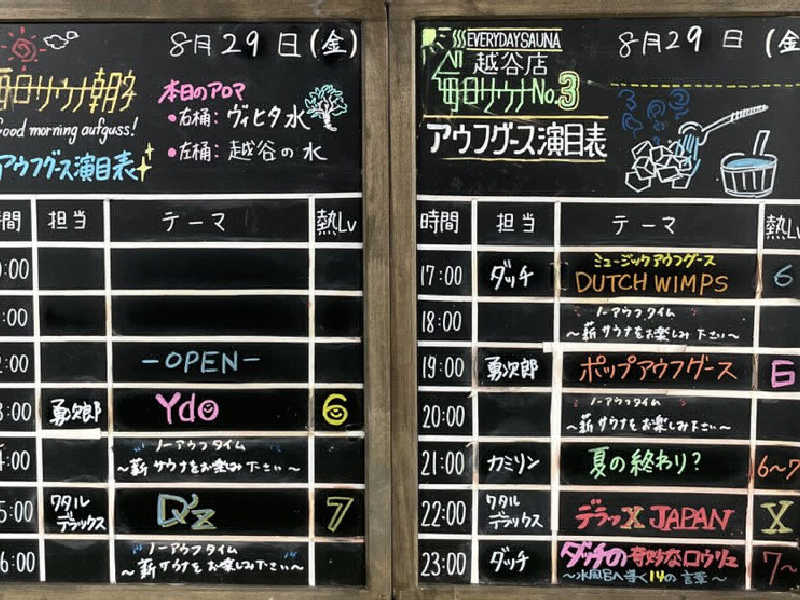 8月29日(金)
毎日サウナ朝
Good morning aufguss!
アウフグース演目表
本日のアロマ
•右桶: ヴィヒタ水
•左桶: 越谷の水
時間 担当 テーマ 熱Lv
0:00
1:00
2:00 -OPEN-
3:00 勇次郎 Ydo 6
4:00 ノーアウフタイム
〜薪サウナをお楽しみ下さい〜
5:00 ワタルデラックス Q'z 7
6:00 ノーアウフタイム
〜薪サウナをお楽しみ下さい〜
8月29日(金)
EVERYDAYSAUNA
越谷店
毎日サウナ No.3
アウフグース演目表
時間 担当 テーマ 熱Lv
17:00 ダッチ ミュージックアウフグース
DUTCH WIMPS 6
18:00 ノーアウフタイム
〜薪サウナをお楽しみ下さい〜
19:00 勇次郎 ポップアウフグース 6
20:00 ノーアウフタイム
〜薪サウナをお楽しみ下さい〜
21:00 カミリン 夏の終わり? 6~7
22:00 ワタルデラックス デラッX JAPAN X
23:00 ダッチ ダッチの奇妙なロウリュ 7~
〜水風呂へ導く14の言葉〜